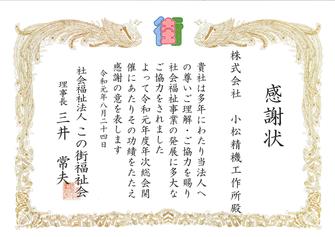 街
感謝状
株式会社 小松精機工作所殿
貴社は多年にわたり当法人へ
の尊いご理解・ご協力を賜り
社会福祉事業の発展に多大な
ご協力をされました
よって令和元年度年次総会開
催にあたりその功績をたたえ
感謝の意を表します
令和元年八月二十四日
社会福祉法人 この街福祉会
理事長 三井 常夫